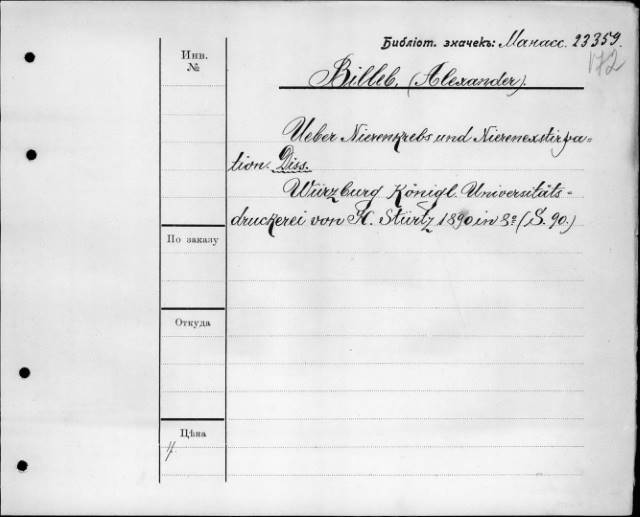 Библіот. значекъ: Манасс. 23359.
172
Инв.
№
Billeb. (Alexander).
Ueber Nierenkrebs und Nierenexstirpa-
tion. Diss.
Würzburg Königl. Universitäts-
druckerei von H. Stürtz 1890 in 8º (S. 90.)
По заказу
Откуда
Цѣна